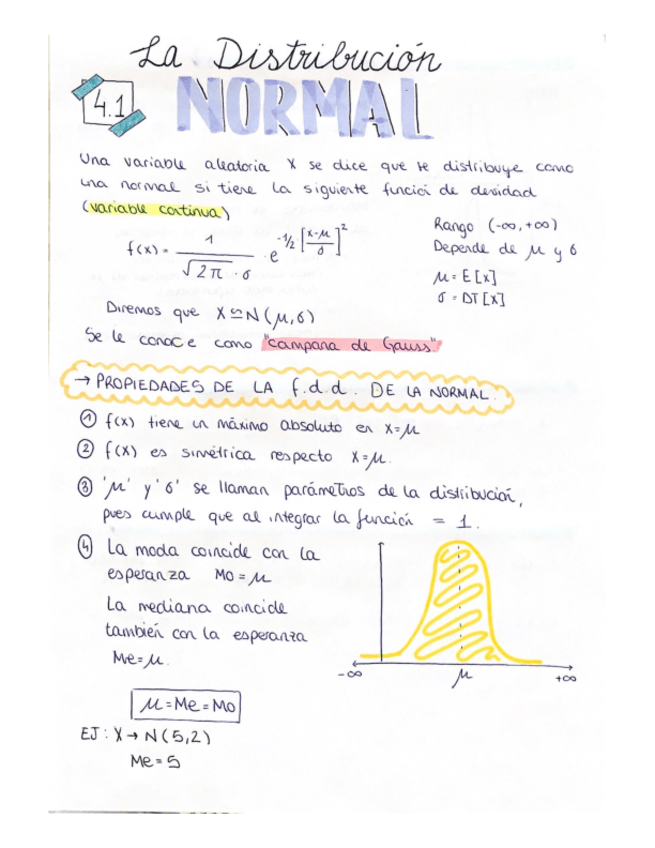 La Distribución
4.1 NORMAL
Una variable aleatoria X se dice que se distribuye como
una normal si tiene la siguiente función de densidad
(variable continua)
f(x) = 1 / √2π · σ · e^-1/2 [x-μ / σ]^2
Rango (-∞, +∞)
Depende de μ y σ
μ = E[x]
σ = DT[x]
Diremos que X ≌ N(μ,σ)
Se le conoce como "campana de Gauss"
→ PROPIEDADES DE LA f.d.d. DE LA NORMAL.
① f(x) tiene un máximo absoluto en x=μ
② f(x) es simétrica respecto x=μ.
③ 'μ' y 'σ' se llaman parámetros de la distribución,
pues cumple que al integrar la función = 1.
④ La moda coincide con la
esperanza Mo = μ
La mediana coincide
también con la esperanza
Me = μ.
-∞ μ +∞
μ = Me = Mo
EJ: X → N(5,2)
Me = 5